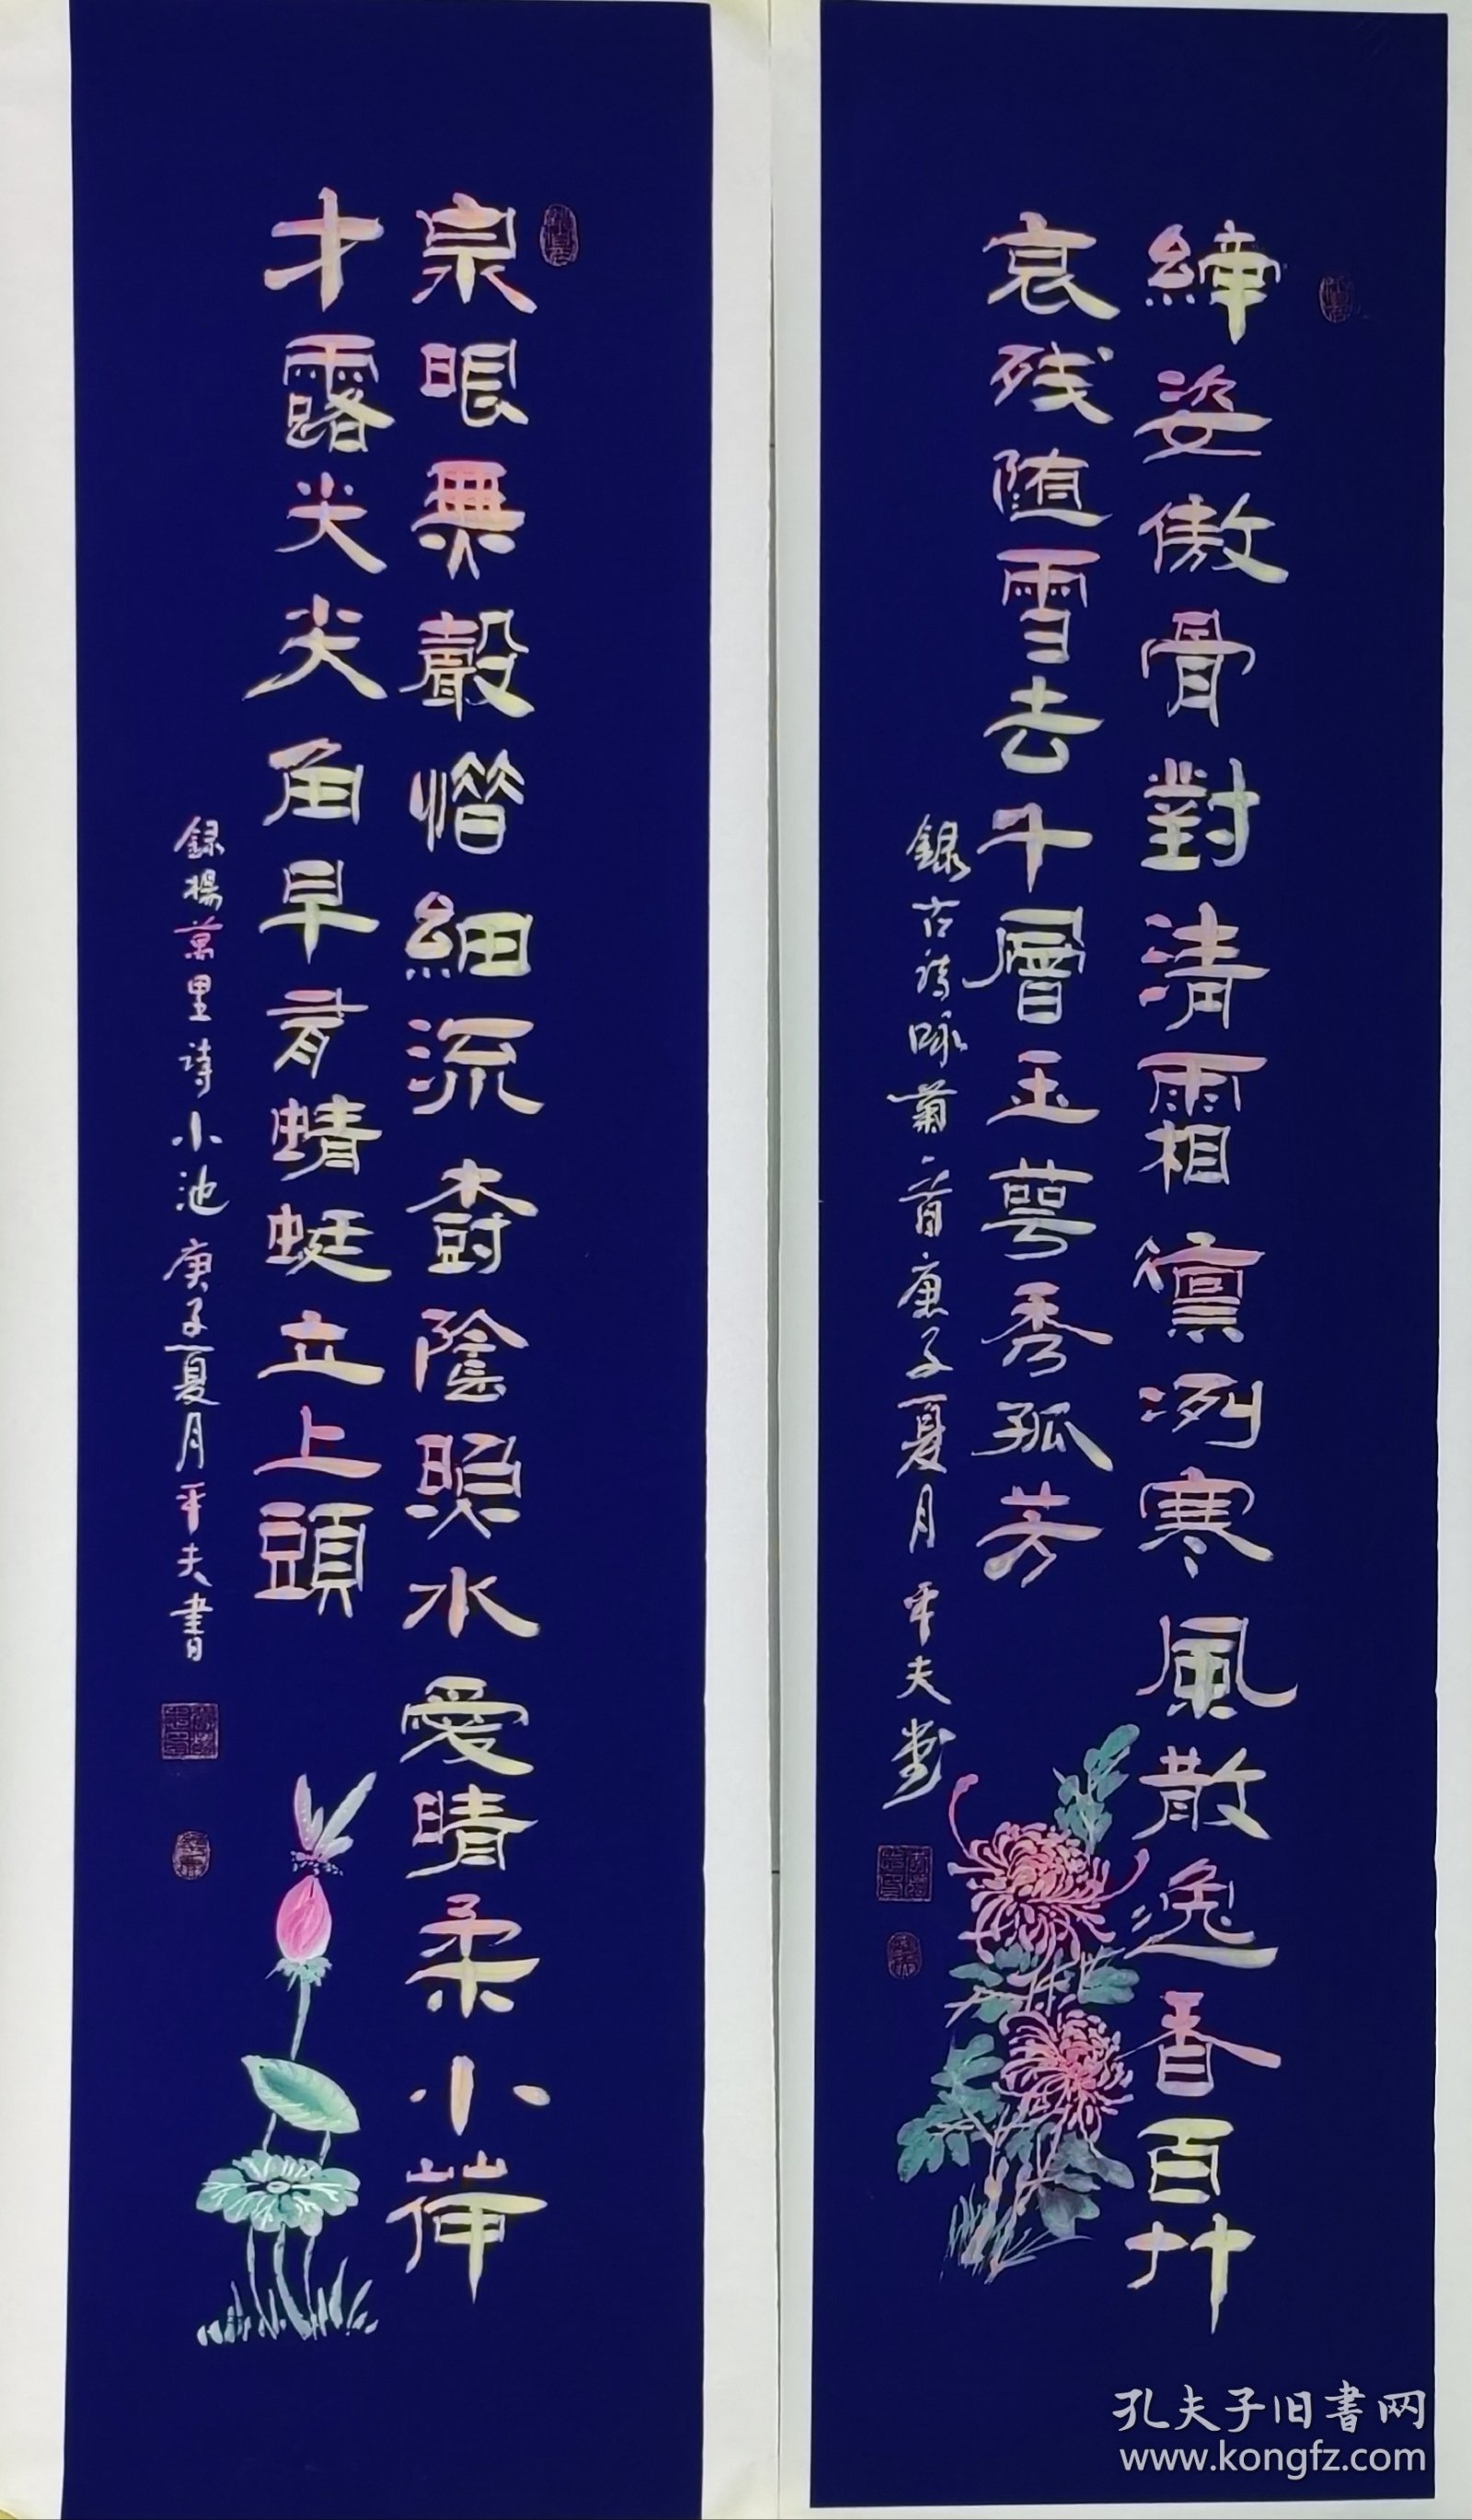 緯姿傲骨對清霜凜冽寒風散逸香百艸
哀残随雪去千層玉萼秀孤芳
録古詩咏菊一首庚子夏月平夫書
泉眼無聲惜細流樹陰照水愛晴柔小荷
才露尖尖角早有蜻蜓立上頭
録楊萬里詩小池庚子夏月平夫書
孔夫子旧書网
www.kongfz.com